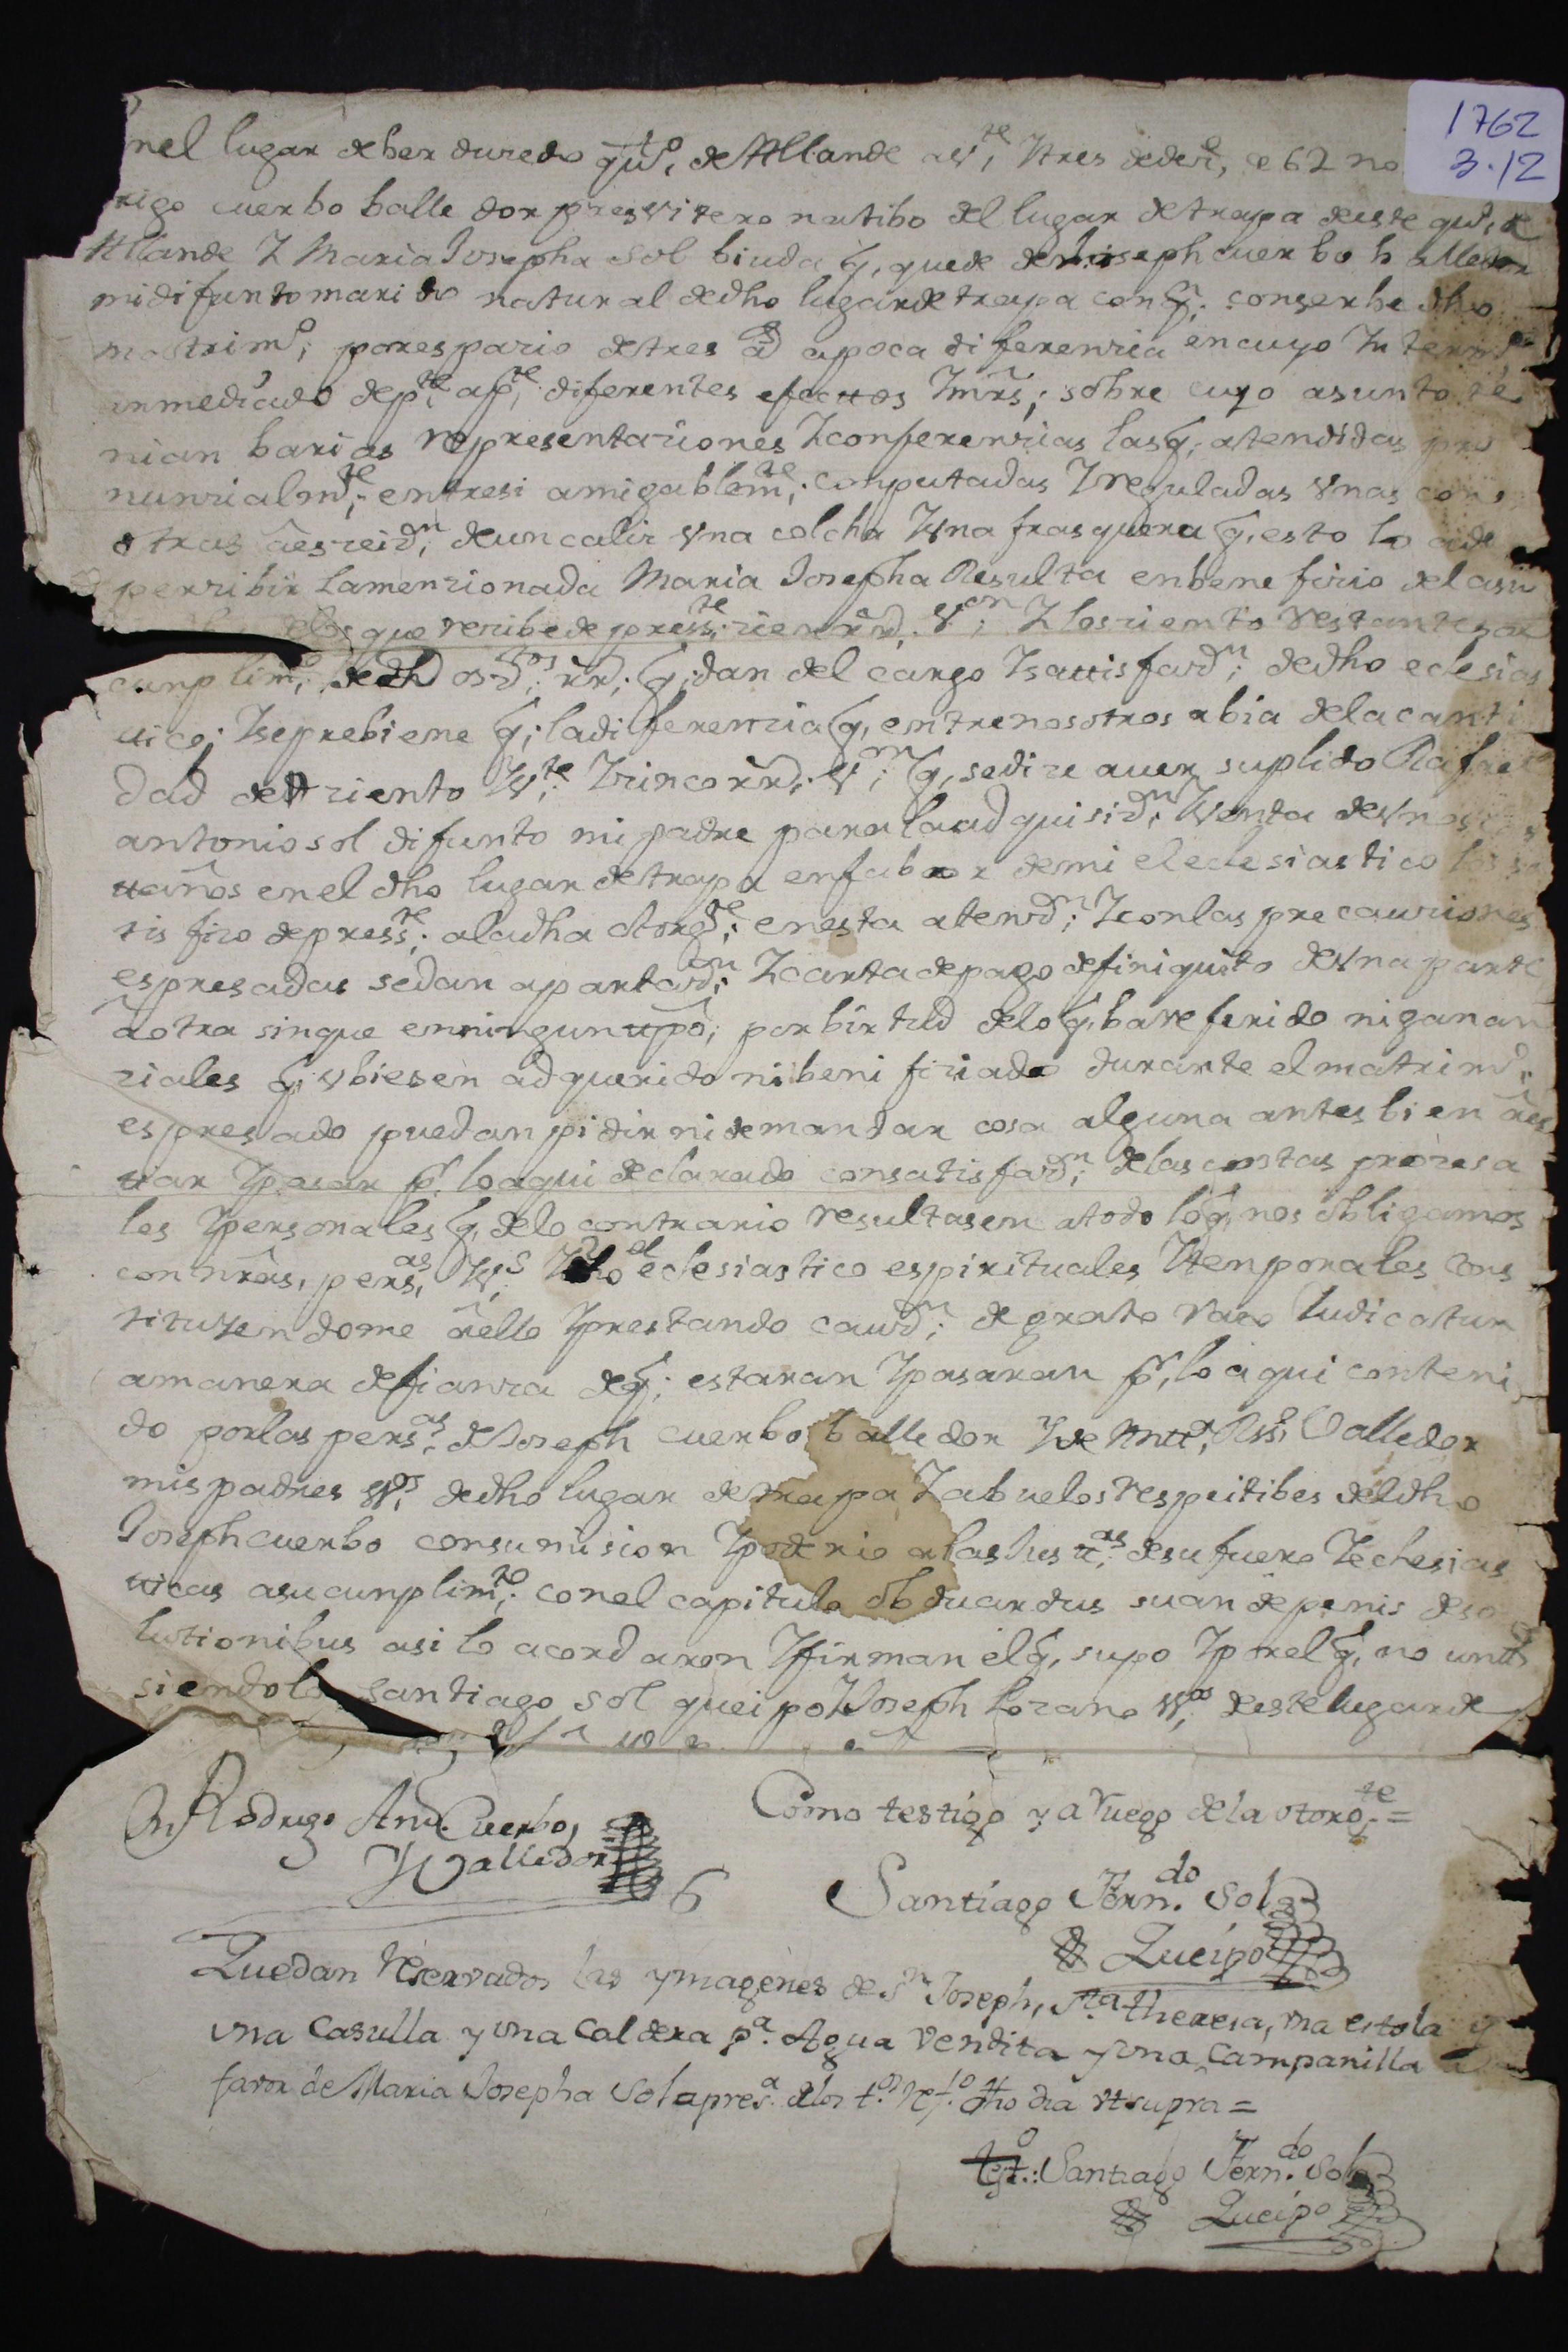 1762
3-12
nel lugar de herduredo qto, de Allande a vte, y tres de der, de 62 no
rigo cuerbo balledor presvitero natibo del lugar de trapa deste qto, de
Allande y Maria Josepha Sol biuda q, quede de Joseph cuerbo balledor
mi difunto marido natural de dho lugar de trapa con q; conserbe dho
matrimo; por espazio de tres as a poca diferenzia en cuyo Interm
an mediado de pte, a pte, diferentes efecttos y mrs; sobre cuyo asunto te
nian barias representaziones y conferenzias las q, atendidas pro
nunzialmte; entre si amigablemte; computadas y reguladas unas con
otras a eszeizn; de un caliz una colcha y una frasquera q, esto lo a de
perzibir la menzionada Maria Josepha Resulta en benefizio del asu
que rezibe de presste; zien rrd. Von; y los ziento restantes a
cunplimto; de dhos dos; rrd; q, dan del cargo y sattisfazn; de dho eclesias
tico; y se prebiene q; la diferenzia q, entre nosotros abia de la canti
dad de ziento vte; y zinco rrd. Von; q, se dize auer suplido Rafael
antonio sol difunto mi padre para la adquisizn; y venta de unos
ttaños en el dho lugar de trapa en fabor de mi el eclesiastico los sa
tisfizo de presste; a la dha otorgte; en esta atenzn; y con las precauziones
espresadas se dan apartazn; y carta de pago de finiquito de una parte
a otra sin que en ningun tpo; por birtud de lo q, ba referido ni ganan
ziales q, ubiesen adquerido ni benifiziado durante el matrimo;
espresado puedan pidir ni demandar cosa alguna antes bien a es
tar y pasar pr, lo aqui declarado con satisfazn; de las costas prozesa
les y personales q, de lo contrario resultasen a todo lo q, nos obligamos
con nras, persas, vs y dho el eclesiastico espirituales y temporales cons
tituyendome a ello y prestando cauzn; de grato rato Iudicatun
a manera de fianza de q; estaran y pasaran pr, lo aqui conteni
do por las persas; de Joseph cuerbo balledor y de Antta; Valledor
mis padres vos; de dho lugar de trapa y abuelos respeitibes del dho
Joseph cuerbo con sumision y poderio a las Justtas; de su fuero y eclesias
ticas a su cunplimto; con el capitulo obduardus suan de penis de so
lutionibus asi lo acordaron y firman el q, supo y por el q, no
siendolo santiago sol queipo y Joseph lozano vos; deste lugar de
Dn Rodrigo Anto. Cuerbo,
y Valledor
Como testigo y a Ruego de la otorgte =
Santiago Ferndo. Sol
Queipo
Quedan Reservados las ymagenes de Sn Joseph, sta theresa, una estola y
una Casulla y una Caldera pa. Agua Vendita y una Campanilla
favor de Maria Josepha Sol a presa. de los tos. Refdo. dho dia ut supra =
tgo.: Santiago Ferndo. Sol
Queipo